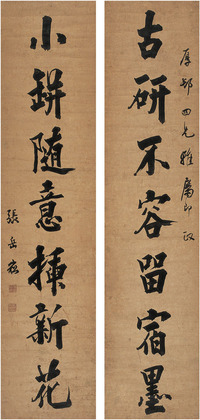 古研不容留宿墨
厚邨四兄雅属即政
小缾随意插新花
張岳崧